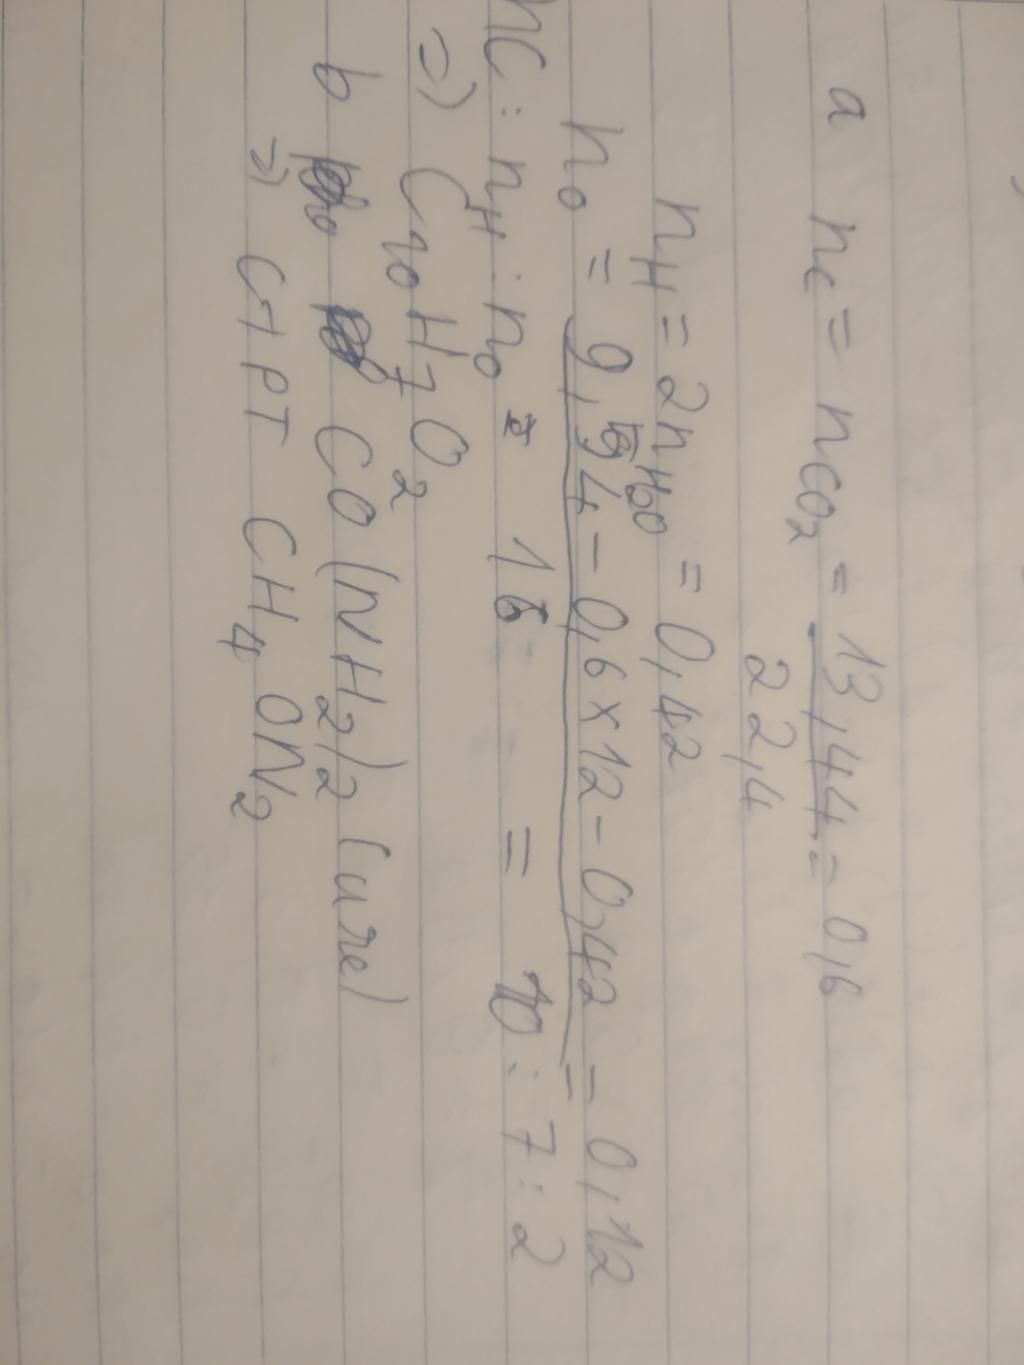 a nC = nCO2 = 13,44 = 0,6
22,4
nH = 2nH2O = 0,42
nO = 9,54 - 0,6 x 12 - 0,42 = 0,12
16
nC : nH : nO = 10 : 7 : 2
=> C10H7O2
b CO(NH2)2 (ure)
=> CTPT CH4ON2